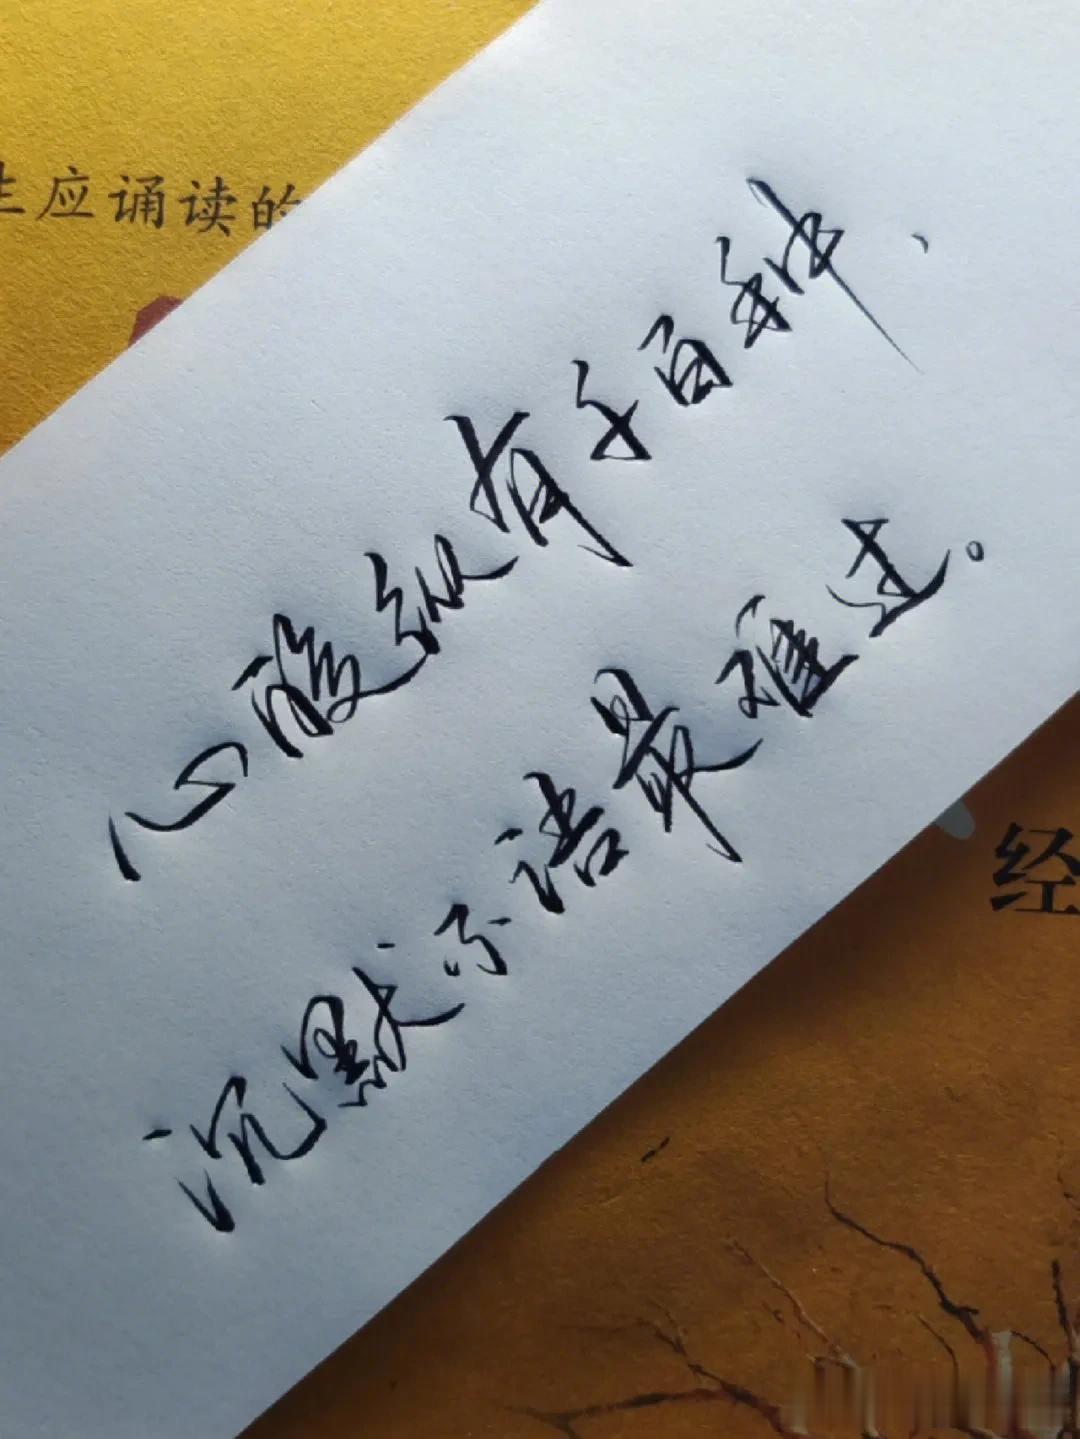 生应诵读的
心酸纵有千百种、
沉默不语最难过。
经